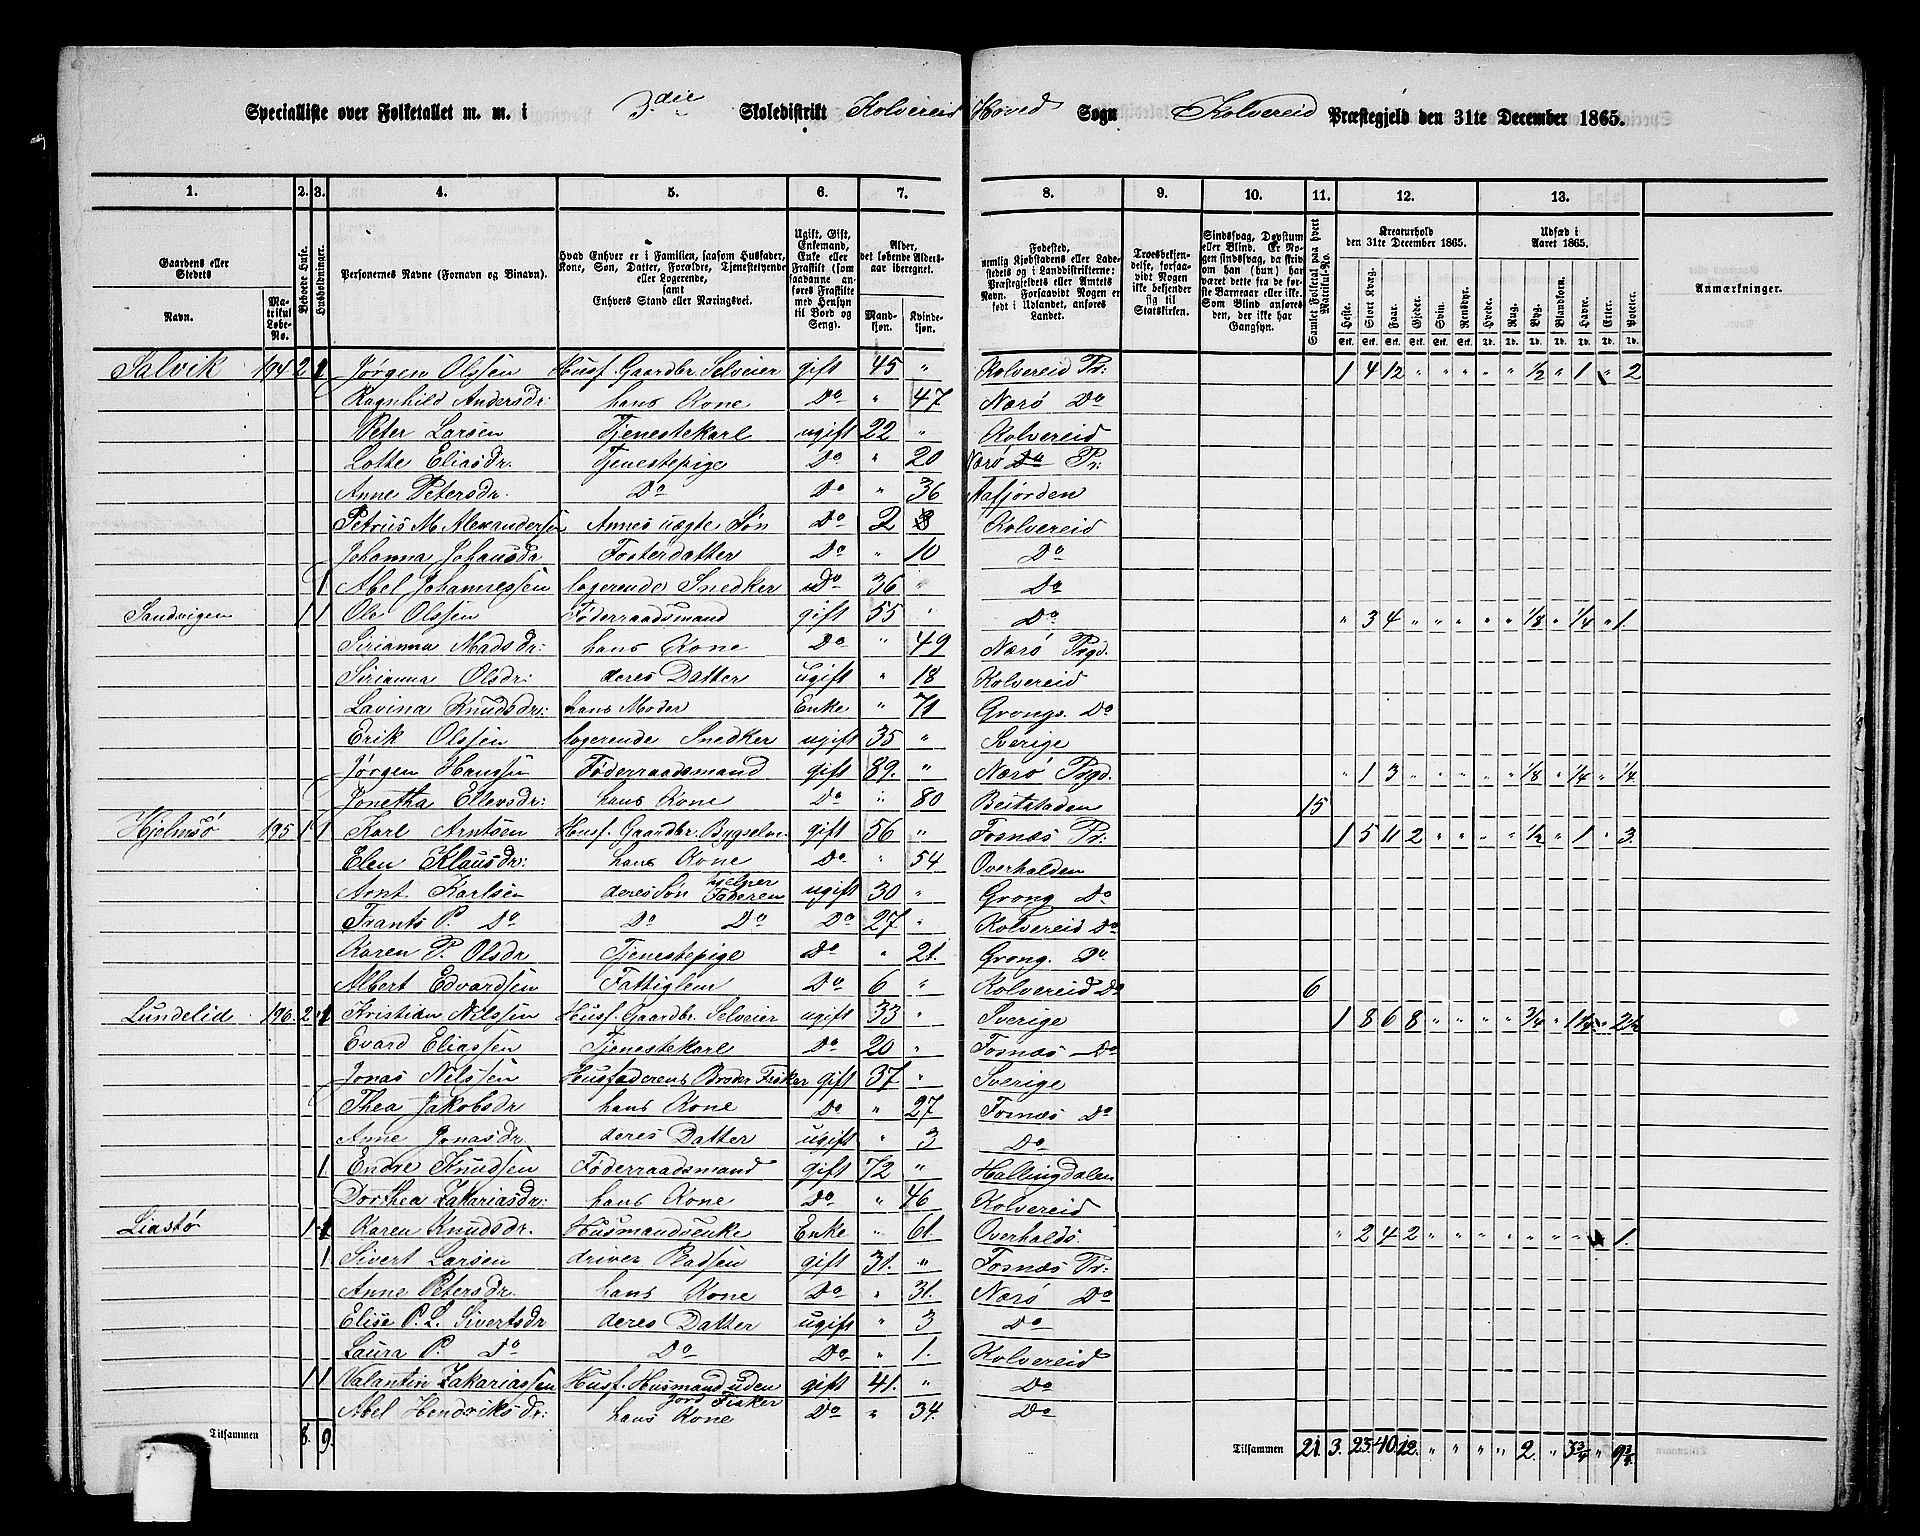 Specialliste over Folketallet m. m. i 3die Skoledistrikt Kolvereid Hoved Sogn Kolvereid Præstegjeld den 31te December 1865.
1. 2. 3. 4. 5. 6. 7. 8. 9. 10. 11. 12. 13.
Gaardens eller Stedets Navn. Matrikul Løbe-No. Beboede Huse. Husholdninger. Personernes Navne (Fornavn og Tilnavn). Hvad Enhver er i Familien, saasom Husfader, Kone, Søn, Datter, Forældre, Tjenestetyende eller Logerende, samt Enhvers Stand eller Næringsvei. Ugift, Gift, Enkemand, Enke eller Fraskilt (saaledes anføres Fraskilte med Hensyn til Bord og Seng). Alder, det løbende Alders-aar iberegnet. Mandkjøn. Kvindekjøn. Fødested, Troesbekjendelse, forsaavidt Nogen ikke bekjender sig til Statskirken. Samlet Folketal paa hvert Matrikul-No. Kreaturhold den 31te December 1865. Udsæd i Aaret 1865. Anmærkninger.
Heste. Stort Kvæg. Faar. Gjeder. Svin. Rensdyr. Hvede. Rug. Byg. Blandkorn. Havre. Erter. Poteter.
Salvik 194 2 1 Jørgen Olssen Husf. Gaardbr. Selveier gift 45 " Kolvereid Pr: 1 4 12 " " " " " 1/2 " 1 " 2
Ragnhild Andersdr: hans Kone Do " 47 Nærø Do
Peter Larsen Tjenestekarl ugift 22 " Kolvereid
Lotte Eliasdr. Tjenestepige Do " 20 Nærø Pr:
Anne Petersdr. Do Do " 36 Aafjorden
Petrus M. Alexandersen Annes uægte Søn Do 2 Kolvereid
Johanna Johansda Fosterdatter Do " 10 Do
1 Abel Johannessen logerende Snedker Do 36 " Do
Sandvigen 1 1 Ole Olssen Føderraadsmand gift 55 " Do " 3 4 " " " " " 1/8 " 1/4 " 1.
Sirianna Madsdr: hans Kone Do " 49 Nærø Prgd.
Sirianna Olsdr: deres Datter ugift " 18 Kolvereid
Lavina Knudsdr: hans Moder Enke " 71 Grongs. Do
Erik Olssen logerende Snedker ugift 35 " Sverige
Jørgen Hanssen Føderraadsmand gift 89. " Nærø Prgd. " 1 3 " " " " " 1/8 " 1/4 " 1/4
Jonetha Ellevsdr: hans Kone Do " 80 Beitstaden 15
Hjelmsø 195 1 1 Karl Arntsen Husf. Gaardbr. Bygselm. gift 56 " Fosnæs Pr: 1 5 11 2 " " " " 1/2 " 1 " 3.
Elen Klausdr: hans Kone Do " 54 Overhalden
Arnt Karlsen deres Søn hjelper Faderen ugift 30 " Grong Do
Frants P. Do Do Do Do 27. " Kolvereid Do
Karen P. Olsdr Tjenestepige Do " 21. Grong. Do
Albert Edvardsen Fattiglem Do 6 " Kolvereid Do 6
Lundelid 196. 2 1 Kristian Nilssen Husf. Gaardbr. Selveier ugift 33 " Sverige 1 8 6 8 " " " " 3/4 "
Evard Eliassen Tjenestekarl Do 20 " Fosnæs Do
Jonas Nilssen Husfaderens Broder Fisker gift 37 " Sverige
Thea Jakobsdr hans Kone Do " 27 Fosnæs Do
Anne Jonasdr. deres Datter ugift " 3 Do
1. Endre Knudsen Føderraadsmand gift 72 " Hallingdalen
Dorthea Zakariasdr: hans Kone Do " 46 Kolvereid
Liastø 1 1 Karen Knudsdr. Husmandsenke Enke " 61. Overhalds. " 2 4 2 " " " " " " " 1.
1 Sivert Larsen driver Pladsen gift 31. " Fosnæs Pr:
Anne Petersdr. hans Kone Do " 31. Nærø Do
Elise P. L. Sivertsdr deres Datter ugift " 3 Do
Laura P. Do Do Do " 1. Kolvereid
1 1 Valantin Zakariassen Husf. Husmand uden Jord Fisker gift 41. " Do
Abel Hendriksdr: hans Kone Do " 34. Do
Tilsammen 8. 9. Tilsammen 21. 3. 23 40. 12. " " " " 2. " 3 3/4 " 9 3/4